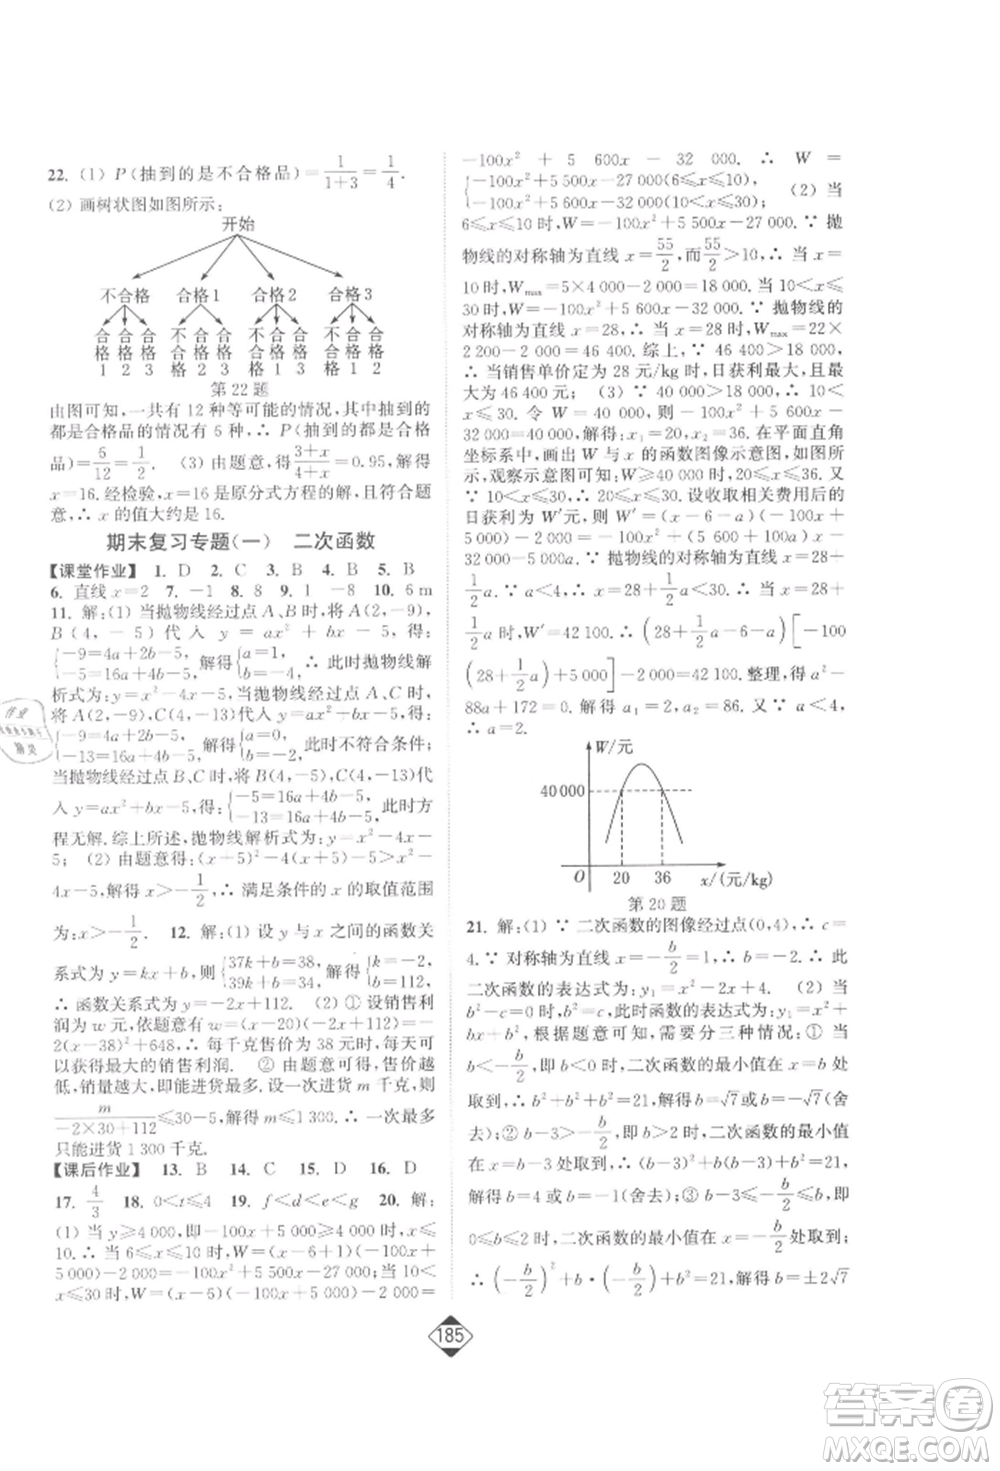 22. (1) P(抽到的是不合格品)=1/(1+3)=1/4.
(2) 画树状图如图所示:
开始
不合格 合格1 合格2 合格3
合格1 合格2 合格3 不合格 合格2 合格3 不合格 合格1 合格3 不合格 合格1 合格2
第22题
由图可知,一共有 12 种等可能的情况,其中抽到的
都是合格品的情况有 6 种,∴ P(抽到的都是合格
品)=6/12=1/2. (3) 由题意,得(3+x)/(4+x)=0.95,解得
x=16.经检验,x=16是原分式方程的解,且符合题
意,∴ x 的值大约是 16.
期末复习专题(一) 二次函数
【课堂作业】 1. D 2. C 3. B 4. B 5. B
6. 直线 x=2 7. -1 8. 8 9. -8 10. 6 m
11. 解:(1) 当抛物线经过点 A、B 时,将 A(2,-9),
B(4,-5)代入 y=ax²+bx-5,得:
{-9=4a+2b-5, -5=16a+4b-5, 解得{a=1, b=-4. ∴ 此时抛物线解
析式为:y=x²-4x-5;当抛物线经过点 A、C 时,
将 A(2,-9),C(4,-13)代入 y=ax²+bx-5,得:
{-9=4a+2b-5, -13=16a+4b-5, 解得{a=0, b=-2. ∴ 此时不符合条件;
当抛物线经过点 B、C 时,将 B(4,-5),C(4,-13)代
入 y=ax²+bx-5,得:{-5=16a+4b-5, -13=16a+4b-5, 此时方
程无解.综上所述,抛物线解析式为:y=x²-4x-
5; (2) 由题意得:(x+5)²-4(x+5)-5>x²-
4x-5,解得 x>-1/2,∴ 满足条件的 x 的取值范围
为:x>-1/2. 12. 解:(1) 设 y 与 x 之间的函数关
系式为 y=kx+b,则{37k+b=38, 39k+b=34, 解得{k=-2, b=112.
∴ 函数关系式为 y=-2x+112. (2) ① 设销售利
润为 w 元,依题意有 w=(x-20)(-2x+112)=
-2(x-38)²+648,∴ 每千克售价为 38 元时,每天可
以获得最大的销售利润. ② 由题意可得,售价越
低,销量越大,即能进货最多.设一次进货 m 千克,则
m/(-2×30+112)≤30-5,解得 m≤1 300.∴ 一次最多
只能进货 1 300 千克.
【课后作业】 13. B 14. C 15. D 16. D
17. 4/3 18. 0<t≤4 19. f<d<e<g 20. 解:
(1) 当 y≥4 000 时,-100x+5 000≥4 000,∴ x≤
10.∴ 当 6≤x≤10 时,W=(x-6+1)(-100x+
5 000)-2 000=-100x²+5 500x-27 000.当 10<
x≤30 时,W=(x-6)(-100x+5 000)-2 000=
-100x²+5 600x-32 000.∴ W=
{-100x²+5 500x-27 000(6≤x≤10), -100x²+5 600x-32 000(10<x≤30). (2) 当
6≤x≤10 时,W=-100x²+5 500x-27 000,∵ 抛
物线的对称轴为直线 x=55/2,而55/2>10,∴ 当 x=
10 时,Wmax=5×4 000-2 000=18 000.当 10<x≤
30 时,W=-100x²+5 600x-32 000.∵ 抛物线的
对称轴为直线 x=28,∴ 当 x=28 时,Wmax=22×
2 200-2 000=46 400.综上,∵ 46 400>18 000,∴
当销售单价定为 28 元/kg 时,日获利最大,且最大
利为 46 400 元; (3) ∵ 40 000>18 000,∴ 10<
x≤30.令 W=40 000,则-100x²+5 600x-
32 000=40 000,解得:x₁=20,x₂=36.在平面直角
坐标系中,画出 W 与 x 的函数图像示意图,如图所
示,观察示意图可知:当 W≥40 000 时,20≤x≤36.
又∵ 10<x≤30,∴ 20≤x≤30.设收取相关费用后的
日获利为 W′元,则 W′=(x-6-a)(-100x+
5 000)-2 000,∴ 抛物线的对称轴为直线 x=28+
1/2a.∵ a<4,∴ 28+1/2a<30.∴ 当 x=28+
1/2a 时,W′=42 100.∴ (28+1/2a-6-a)[-100
(28+1/2a)+5 000]-2 000=42 100.整理,得:a²-
88a+172=0.解得 a₁=2,a₂=86.又∵ a<4,
∴ a=2.
W/元
40 000
O 20 36 x/(元/kg)
第20题
21. 解:(1) ∵ 二次函数的图像经过点(0,4),∴ c=
4.∵ 对称轴为直线 x=-b/2=1,∴ b=-2.∴ 此
二次函数的表达式为:y₁=x²-2x+4; (2) 当
b²-c=0 时,b²=c,此时函数的表达式为:y₁=x²+
bx+b²,根据题意可知,需要分三种情况:① 当
b<-b/2,即 b<0 时,二次函数的最小值在 x=b 处
取到,∴ b²+b²+b²=21,解得 b=-√7,b=√7(舍
去);② b-3>-b/2,即 b>2 时,二次函数的最小值
在 x=b-3 处取到,∴ (b-3)²+b(b-3)+b²=21,
解得 b=4,b=-1(舍去);③ b-3≤-b/2≤b,即
0≤b≤2 时,二次函数的最小值在 x=-b/2 处取到,
∴ (-b/2)²+b·(-b/2)+b²=21,解得 b=±2√7
185
答案卷
MXQE.COM